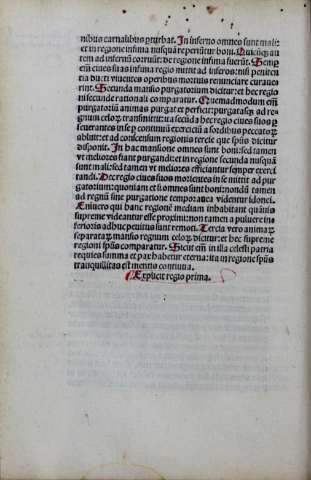 nibus carnalibus pturbat. In inferno omnes sunt mali:
et in regione infima nusquā reperiūtur boni. Quicūq; au
tem ad infernū corruūt: de regione infima fuerūt. Semp
em̄ ciues suos infima regio mittit ad inferos: nisi peniten
tia ducti viuentes operibus mortuis renunciare curaue
rint. Secunda mansio purgatorium dicitur: et hec regio
ni secunde rationali comparatur. Quemadmodum em̄
purgatoriū animas purgat et perficit: purgatasq; ad re
gnum celoꝝ transmittit: ita secūda hec regio ciues suos p
seuerantes in se p continuū exercitiū a sordibus peccatoꝝ
abluit: et ad concensum regionis tercie que spūs dicitur
disponit. In hac mansione omnes sunt boni: sed tamen
vt meliores fiant purgandi: et in regione secunda nusquā
sunt mali: sed tamen vt meliores efficiantur semper exerci
tandi. De regio ciues suos morientes in se mittit ad pur
gatorium: quoniam etsi omnes sunt boni: nondū tamen
ad regnū sine purgatione temporanea videntur idonei.
Enimuero qui hanc regionē mediam inhabitant quāuis
supreme videantur esse proximi: non tamen a puluere in-
ferioris adhuc penitus sunt remoti. Tercia vero animaꝝ
separataꝝ mansio regnum celoꝝ dicitur: et hec supreme
regioni spūs comparatur. Sicut em̄ in illa celesti patria
requies summa et pax habetur eterna: ita in regione spūs
tranquillitas est mentis continua.
Explicit regio prima.